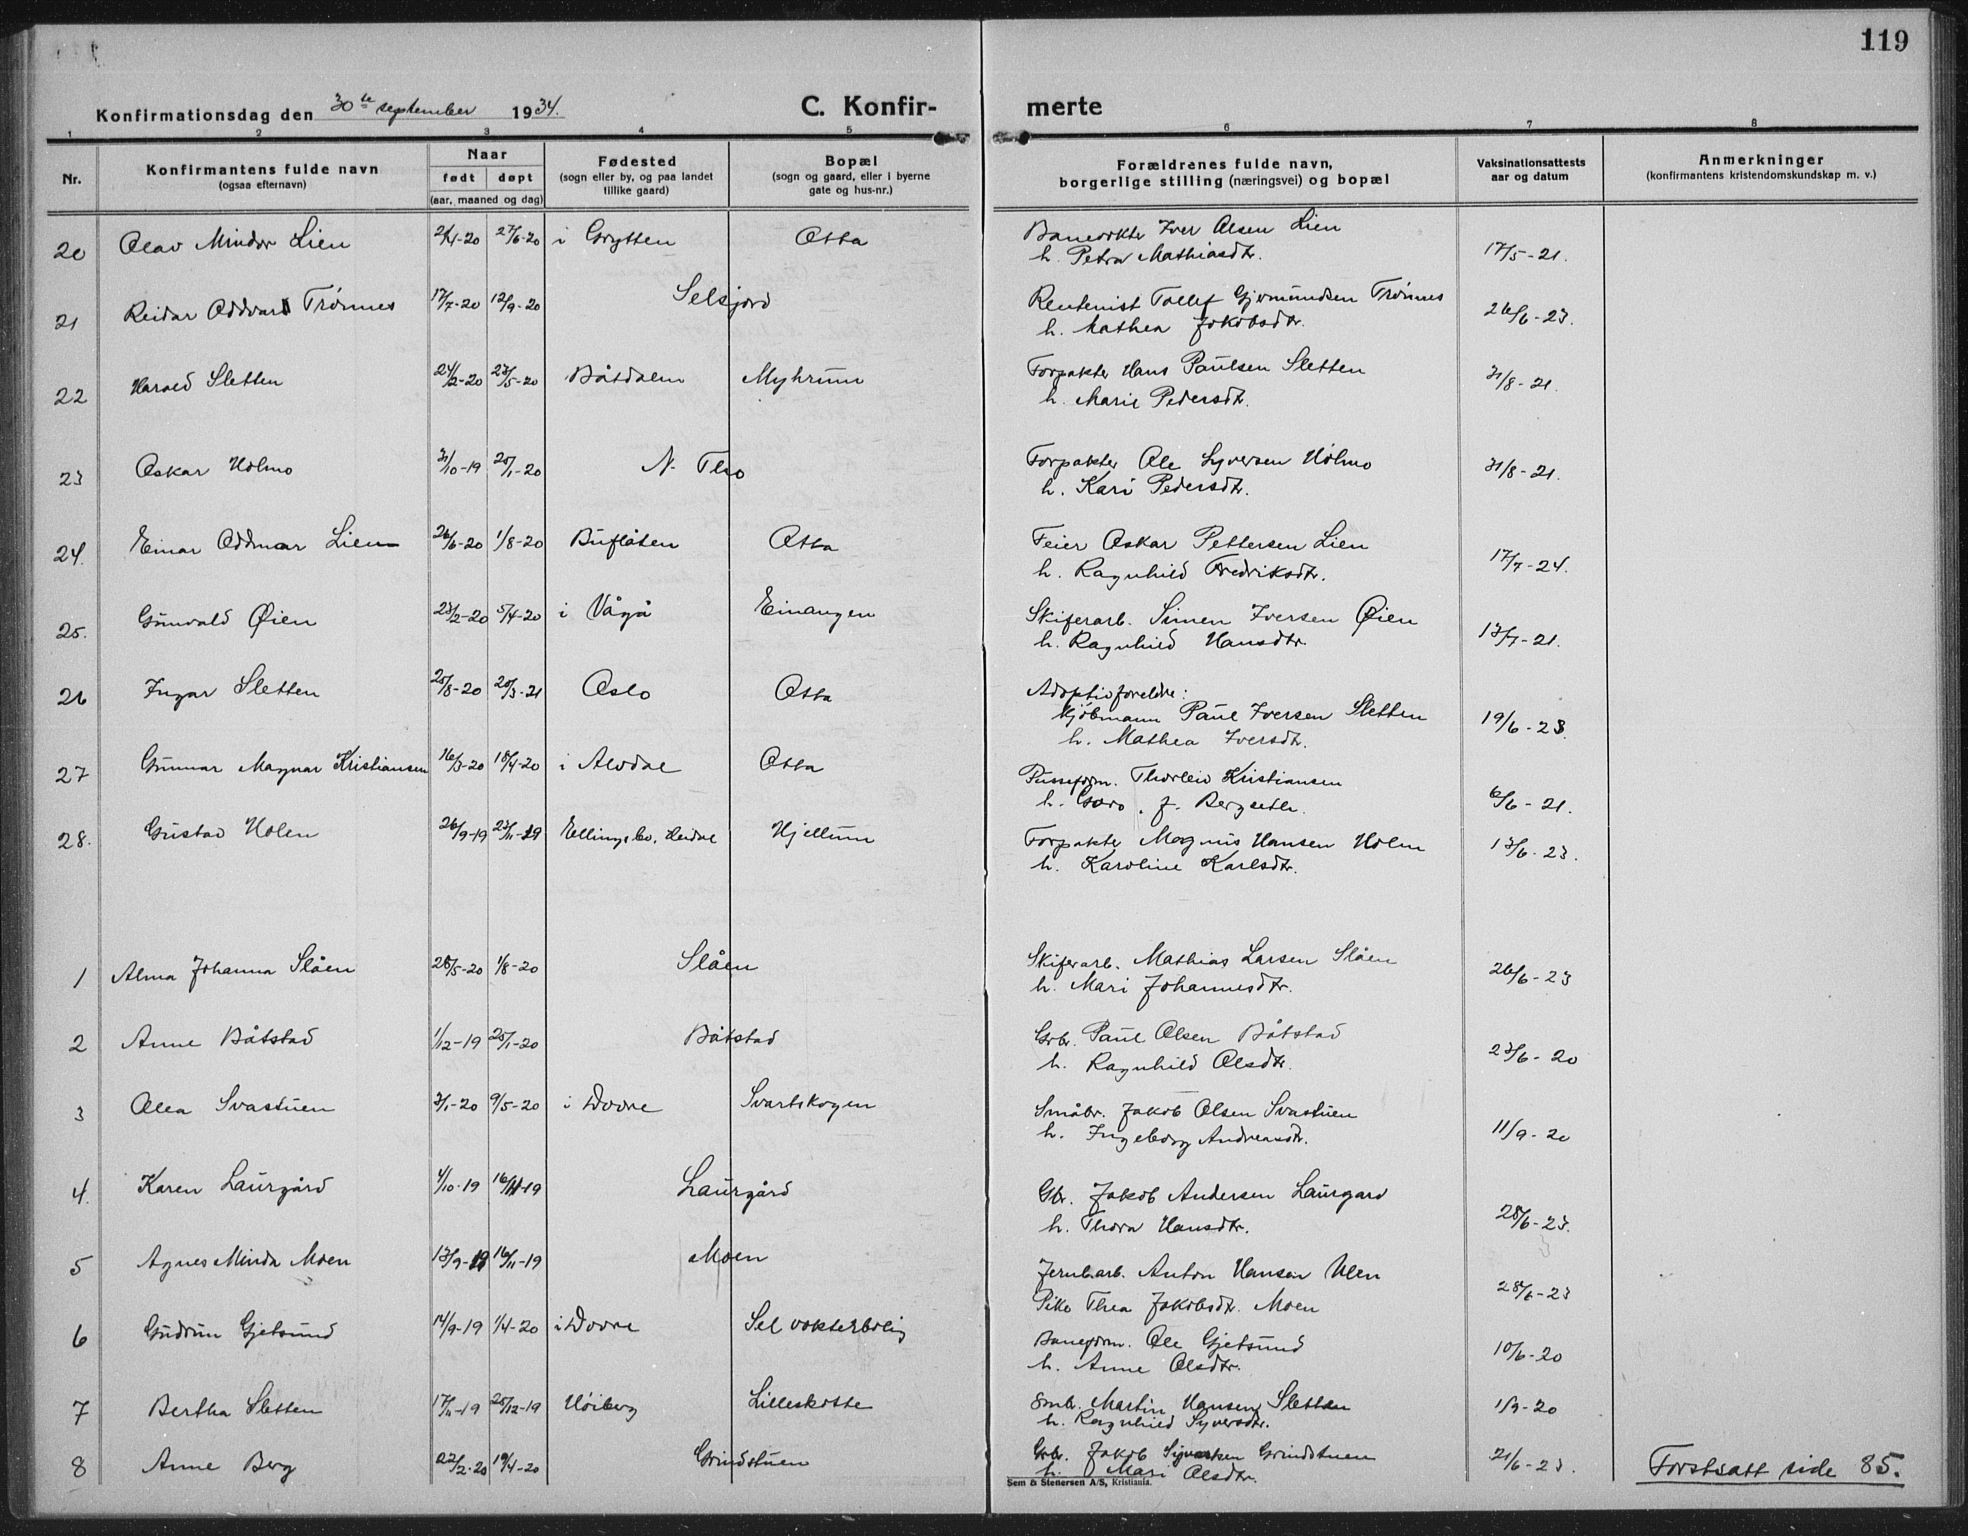 119
Konfirmationsdag den 30te september 1934. C. Konfir- merte
1 2 3 4 5 6 7 8
Nr. Konfirmantens fulde navn (ogsaa efternavn) Naar født døpt (aar, maaned og dag) Fødested (sogn eller by, og paa landet tillike gaard) Bopæl (sogn og gaard, eller i byerne gate og hus-nr.) Forældrenes fulde navn, borgerlige stilling (næringsvei) og bopæl Vaksinationsattests aar og datum Anmerkninger (konfirmantens kristendomskundskap m. v.)
20 Olav Mindor Lien 2/4-20 27/6-20 i Grytten Otta Banevokter Iver Olsen Lien 17/5-21.
h. Petra Mathiasdtr.
21 Reidar Oddvar Trønnes 17/7-20 12/9-20 Selsjord Rentenist Tollef Gjermundsen Trønnes 26/6-23.
h. Mathea Jakobsdtr.
22 Harald Sletten 24/2-20 23/5-20 Båtdalen Myhrum Forpakter Hans Paulsen Sletten 31/8-21.
h. Marie Pedersdtr.
23 Oskar Holmo 31/10-19 25/1-20 N. Tho Forpakter Ole Syversen Holmo 31/8-21.
h. Kari Pedersdtr.
24. Einar Oddmar Lien 26/6-20 1/8-20 Bufløten Otta Feier Oskar Pettersen Lien 17/7-24.
h. Ragnhild Fredriksdtr.
25. Gunvald Øien 23/2-20 5/4-20 i Vågå Einangen Skiferarb. Simen Iversen Øien 13/7-21.
h. Ragnhild Hansdtr.
26 Ingar Sletten 25/8-20 20/3-21 Oslo Otta Adoptivforeldre:
Kjöbmann Paul Iversen Sletten 19/6-23.
h. Mathea Iversdtr.
27 Gunnar Magnar Kristiansen 16/3-20 18/4-20 i Alvdal Otta Pusseform. Thorleiv Kristiansen 6/6-21.
h. Goro, f. Bergseth.
28. Gustav Holen 26/9-19 23/11-19 Ellingsbo, Heidal Hjellum Forpakter Magnus Hansen Holen 13/6-23.
h. Karoline Karlsdtr.
1 Alma Johanna Slåen 28/5-20 1/8-20 Slåen Skiferarb. Mathias Larsen Slåen 26/6-23
h. Mari Johannesdtr.
2 Anne Båtstad 1/12-19 25/1-20 Båtstad Gbr. Paul Olsen Båtstad 23/6-20
h. Ragnhild Olsdtr.
3 Olea Svastuen 3/1-20 9/5-20 i Dovre Svartskogen Småbr. Jakob Olsen Svastuen 11/9-20
h. Ingeborg Andreasdtr.
4. Karen Laurgård 4/10-19 16/11-19 Laurgård Gbr. Jakob Andersen Laurgard 28/6-23.
h. Thora Hansdtr.
5 Agnes Minda Moen 13/9-19 16/11-19 Moen Jernb.arb. Anton Hansen Ulen 28/6-23
Pike Thea Jakobsdtr. Moen
6 Gudrun Gjetsund 14/9-19 1/4-20 i Dovre Sel vokterbolig Baneform. Ole Gjetsund 10/6-20
h. Anne Olsdtr.
7 Bertha Sletten 17/11-19 25/12-19 Höiberg Lilleskotte Smbr. Martin Hansen Sletten 1/9-20
h. Ragnhild Syversdtr.
8 Anne Berg 22/2-20 19/4-20 Grindstuen Gbr. Jakob Syversen Grindstuen 21/6-23.
h. Mari Olsdtr.
Fortsatt side 85.
Sem & Stenersen A/S, Kristiania.